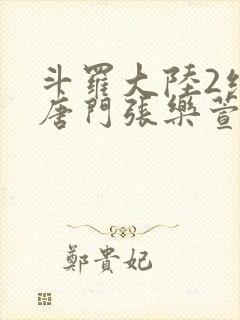 斗羅大陸2
唐門張樂萱
鄭貴妃